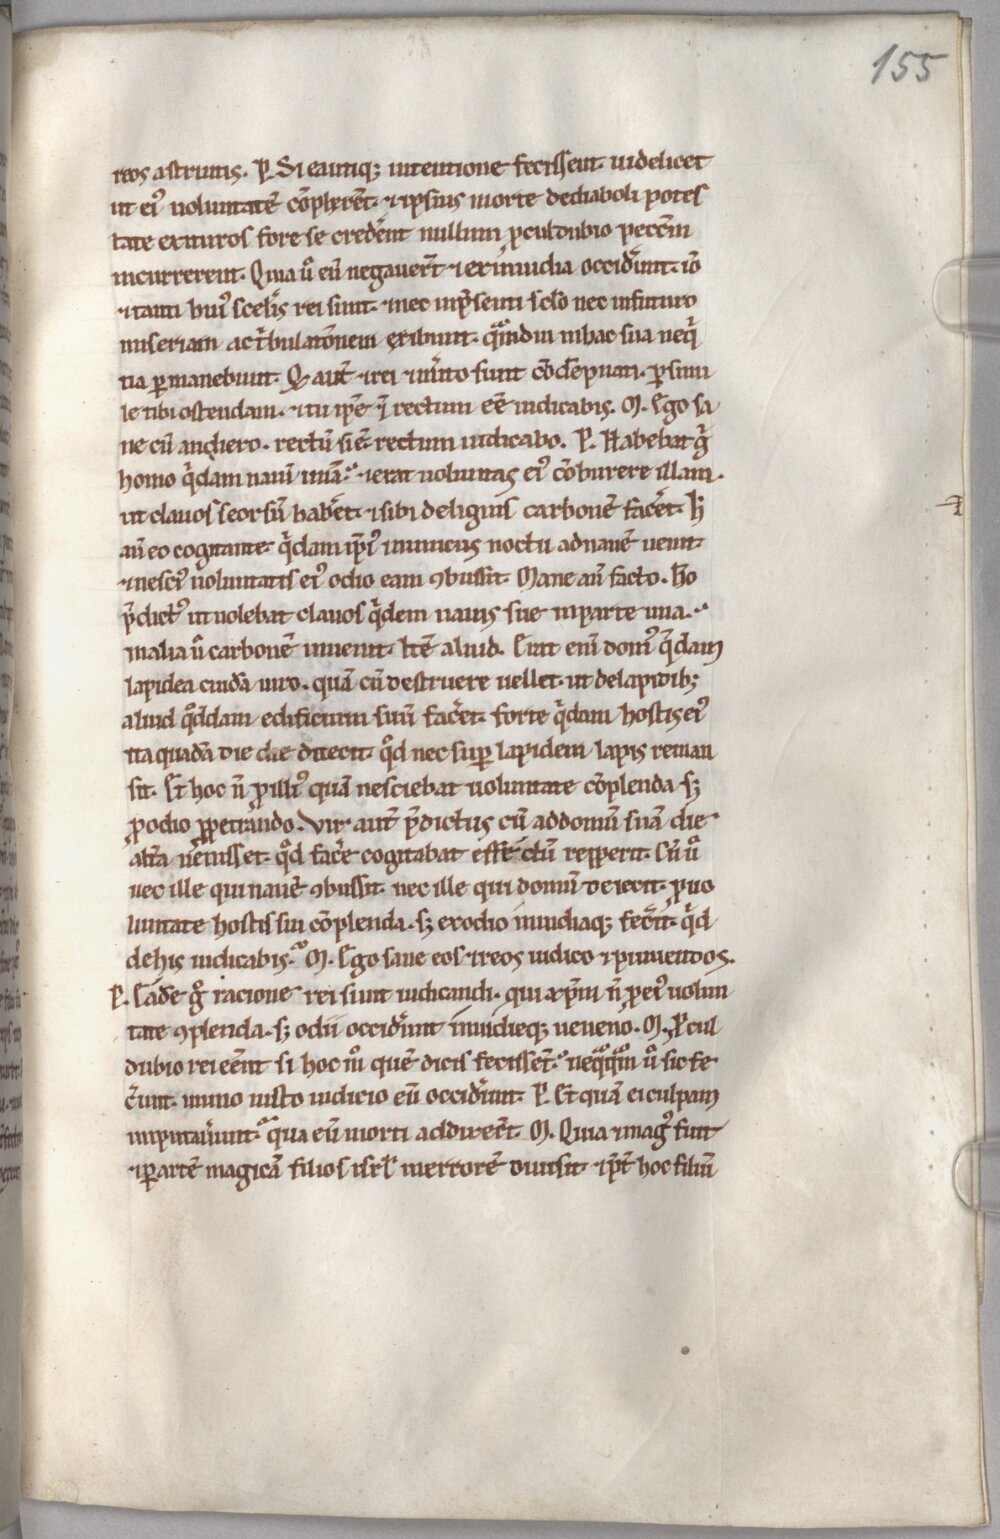 155
reos astruitis. P. Si eantiq; intentione fecissent. uidelicet
ut ei᾽ uoluntatē cōplerēt. ⁊ ipsius morte dediaboli potes
tate exituros fore se crederent nullum proculdubio peccm̄
incurrerent. Quia ū eū negauer̄t ⁊ ex inuidia occider̄unt. iō
⁊ tanti hui᾽ sceleris rei sunt. ⁊ nec inp̄senti sclo nec infuturo
miseriam ac tribulationem exibunt. qͣmdiu inhac sua neq̇
tia ꝑmanebunt. Qd̄ aut̄ ⁊ rei ⁊ merito sunt cōdēpnati. ꝑ simi
le tibi ostendam. ⁊ tu ip̄e qd̄ rectum eē iudicabis. M. Ego sa
ne cū audiero. rectū si ē rectum iudicabo. P. Habebat g̊
homo q̇dam nauī unā. ⁊ erat uoluntas ei᾽ cōburere illam.
ut clauos seorsū haberet. ⁊ sibi delignis carbonē faceret. H
aū eo cogitante. q̇dam ip̄i᾽ inimicus noctu adnauē uenit.
⁊ nesci᾽ uoluntatis ei᾽ odio eam ꝯbussit. Mane aū facto. ho
p̄dict᾽ ut uolebat clauos q̇dem nauis sue inparte una.
inalia ū carbonē inuenit. Itē aliud. Erat eni domus q̄dam
lapidea cuidā uiro. quā cū destruere uellet. ut delapidib;
aliud qͦddam edificium suū faceret. forte q̇dam hostis ei᾽
ita quadā die ea deiecit. qͦd nec sup lapidem lapis reman
sit. Et hoc n̄ ꝓ illi᾽ quā nesciebat uoluntate cōplenda. sꝫ
ꝓ odio ꝑpetrando. Vir aut̄ p̄dictus cū addomū suā die
alt̄a uenisset. qͦd facere cogitabat effectū repperit. Cū ū
nec ille qui nauē ꝯbussit. nec ille qui domū deiecit. ꝓ uo
luntate hostis sui cōplenda. sꝫ exodio inuidiaq; fecerit. q̇d
dehis iudicabis. M. Ego sane eos ⁊ reos iudico ⁊ puniendos.
P. Eadē g̊ racione rei sunt iudicandi. qui xp̄m n̄ ꝓ ei᾽ uolun
tate ꝯplenda. sꝫ odii occiderunt inuidieq; ueneno. M. Procul
dubio rei eēnt si hoc mͦ quē dicis fecissēt. neqͣqͣm ū sic fe
cerunt. immo iusto iudicio eū occiderunt. P. Et quā ei culpam
imputauerunt. qua eū morti addixerēt. M. Quia ⁊ mag᾽ fuit
⁊ ꝑ artē magicā filios isrl̄ inerrorē duxit. ⁊ p̄t hoc filiū